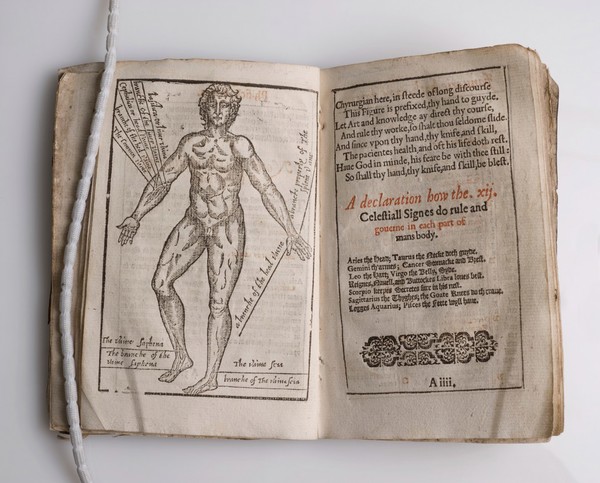 A braunche of the
Cephalica or head vaine
The Common vaine
A braunche of the head vaine
The vaine Saphena
The braunche of the
vaine Saphena
The vaine Scia
braunche of The vaine Scia
Chyrurgian here, in steede of long discourse
This Figure is prefixed, thy hand to guyde.
Let Art and knowledge ay direct thy course,
And rule thy worke, so shalt thou seldome slide.
And since vpon thy hand, thy knife, and skill,
The pacientes health, and oft his life doth rest.
Haue God in minde, his feare be with thee still:
So shall thy hand, thy knife, and skill, be blest.
A declaration how the. xij.
Celestiall Signes do rule and
gouerne in each part of
mans body.
Aries the Head; Taurus the Necke doth guyde.
Gemini th'armes; Cancer Stomacke and Brest.
Leo the Hart; Virgo the Belly, Syde,
Reignes, Nauell, and Buttockes Libra loues best.
Scorpio keepes Secretes sure in his nest.
Sagittarius the Thyghes; the Goate Knees doth craue.
Legges Aquarius; Pisces the Feete wyll haue.
A iiii.